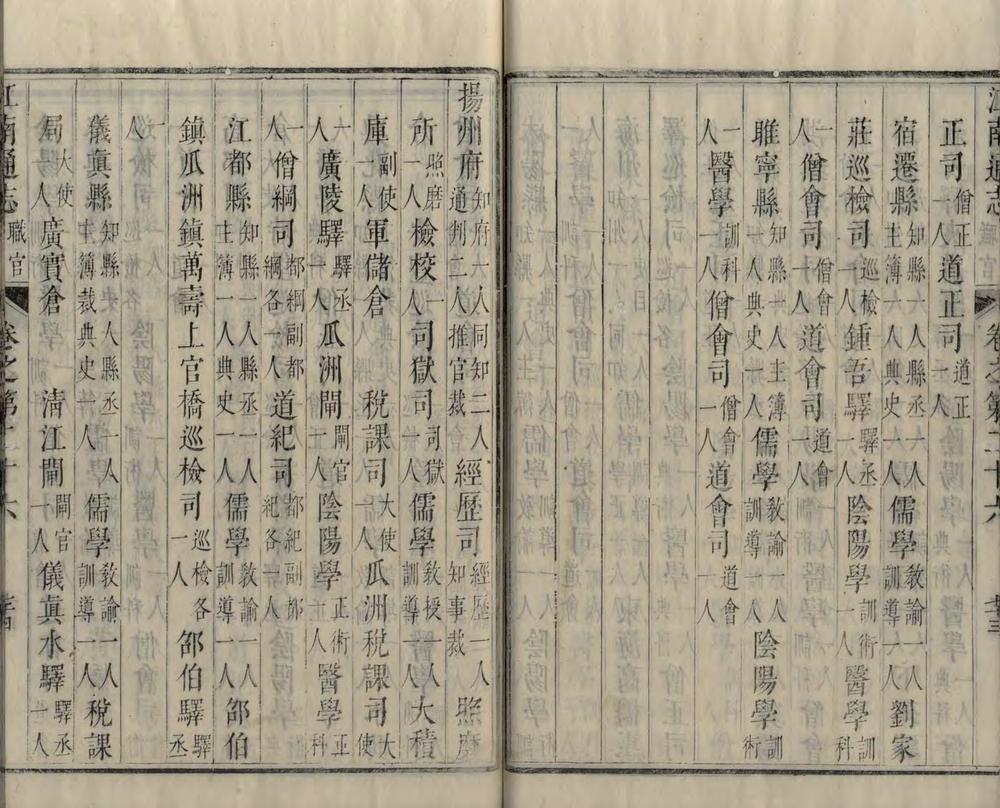 江南通志 卷之第二十六 二十三
正司僧正一人道正司道正一人
宿遷縣知縣一人縣丞一人主簿一人典史一人儒學教諭一人訓導一人劉家
莊巡檢司巡檢一人鍾吾驛驛丞一人陰陽學訓術一人醫學訓科
一人僧會司僧會一人道會司道會一人
睢寧縣知縣一人主簿一人典史一人儒學教諭一人訓導一人陰陽學訓術
一人醫學訓科一人僧會司僧會一人道會司道會一人
揚州府知府一人同知二人通判二人推官裁經歷司經歷一人知事裁照磨
所照磨一人檢校一人司獄司司獄一人儒學教授一人訓導一人大積
庫副使一人軍儲倉 稅課司大使一人瓜洲稅課司大使
一人廣陵驛驛丞一人瓜洲閘閘官一人陰陽學正術一人醫學正科
一人僧綱司都綱副都綱各一人道紀司都紀副都紀各一人
江都縣知縣一人縣丞一人主簿一人典史一人儒學教諭一人訓導一人邵伯
鎮瓜洲鎮萬壽上官橋巡檢司巡檢各一人邵伯驛驛丞
一人
儀眞縣知縣一人縣丞一人主簿裁典史一人儒學教諭一人訓導一人稅課
局大使一人廣實倉 清江閘閘官一人儀眞水驛驛丞一人
江南通志 職官 卷之第二十六 二十四